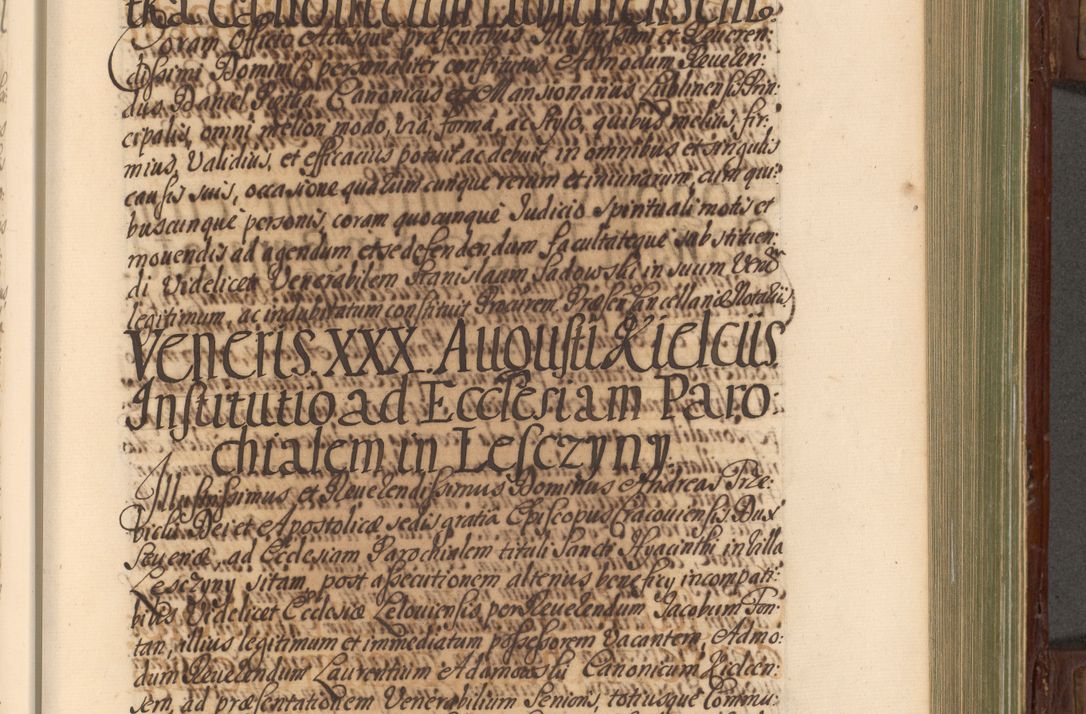 Coram Officio Actisque præsentibus Illustrissimi et Reueren:
dissimi Domini personaliter constitutus Admodum Reueren:
dus Daniel Canonicus et Mansionarius Lublinensis Prin
cipalis, omni meliori modo, via, forma, ac stylo, quibus melius, fir:
mius, validius, et efficacius potuit ac debuit, in omnibus et singulis
causis suis, occasione quarumcunque rerum et iniuriarum, cum qui:
buscunque personis, coram quocunque Judicio Spirituali motis et
mouendis ad agendum et se defendendum facultateque substituen:
di Videlicet Venerabilem Stanislaum Sadowski in suum Verū
legitimum, ac indubitatum constituit Procurem. Præsen Cancellariæ Notariū
Veneris XXX. Augusti Kielciis
Institutio ad Ecclesiam Paro:
chialem in Lesczyny.
Illustrissimus et Reuerendissimus Dominus Andreas Trze:
bicki Dei et Apostolicæ sedis gratia Episcopus Cracouiensis Dux
Seueriæ, ad Ecclesiam Parochialem tituli Sancti Hyacinthi in Villa
Lesczyny sitam, post assecutionem alterius beneficy incompati:
bilis Videlicet Ecclesiæ Lelouiensis, per Reuerendum Jacobum Fon:
tan, illius legitimum et immediatum possessorem vacantem, Admo:
dum Reuerendum Laurentium Adamowski Canonicum Kielcen:
sem, ad præsentationem Venerabilium Senioris, totiusque Commu: